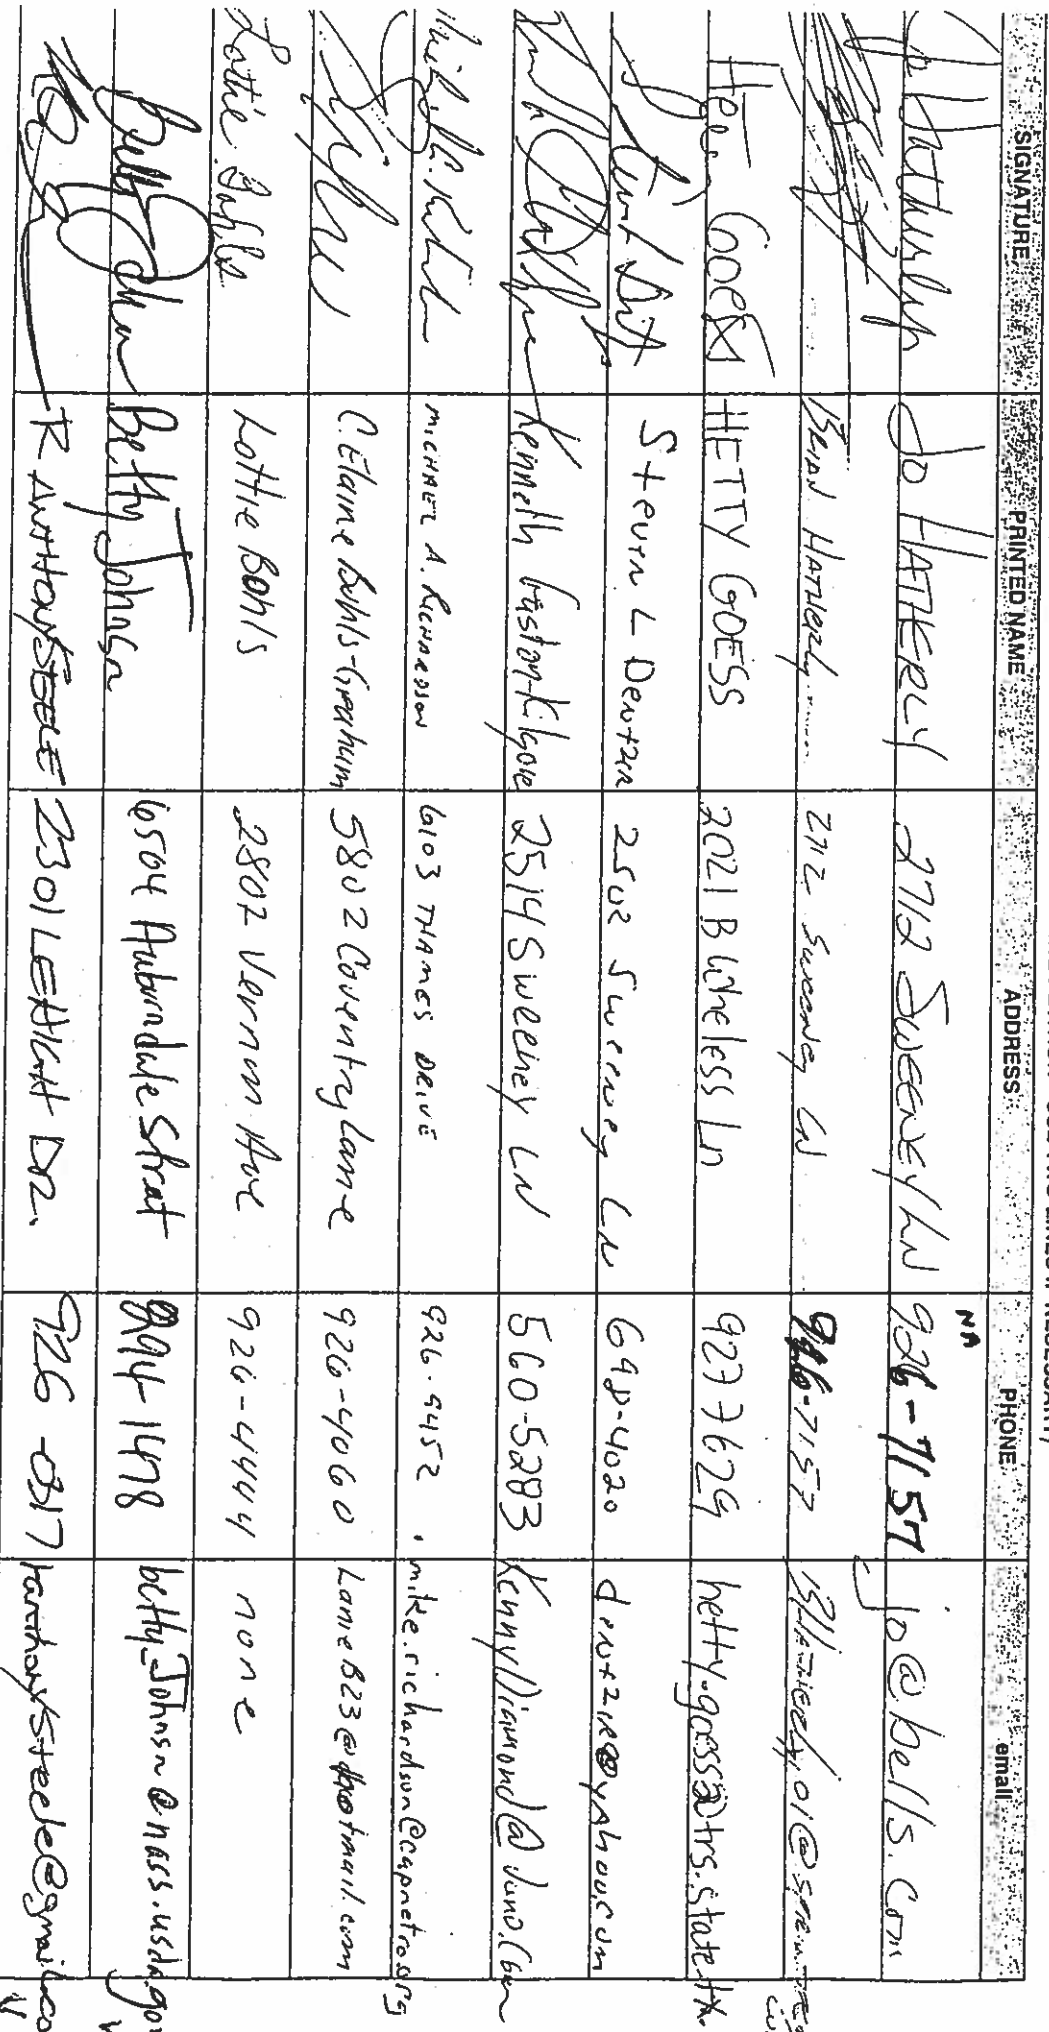 USE TWO LINES IF NECESSARY
SIGNATURE PRINTED NAME ADDRESS PHONE email
Jo Hatherly JO HATHERLY 2712 SWEENEY LN NA 926-7157 jo@bells.com
BRIAN HATHERLY 2712 Sweeney LN 926-7157
Hetty Goess HETTY GOESS 2021 B Wheless Ln 9277629 hetty.goess@trs.state.tx.
Steven L Dentzer 2502 Sweeney LN 698-4020 dentzer@yahoo.com
Kenneth Gaston-Kilgore 2514 Sweeney LN 560-5283 KennyDiamond@Juno.Com
MICHAEL A. RICHARDSON 6103 THAMES DRIVE 926-9452 mike.richardson@capmetro.org
C. Elaine Bohls-Graham 5802 Coventry Lane 926-4060 LanieB23@hotmail.com
Lottie Bohls Lottie Bohls 2802 Vernon Ave 926-4444 none
Betty John Betty Johnson 6504 Auburndale Street 294-1478 betty_Johnson@nass.usda.gov
R ANTHONY STEELE 2301 LEHIGH DR. 926-0317 ranthonysteele@gmail.co